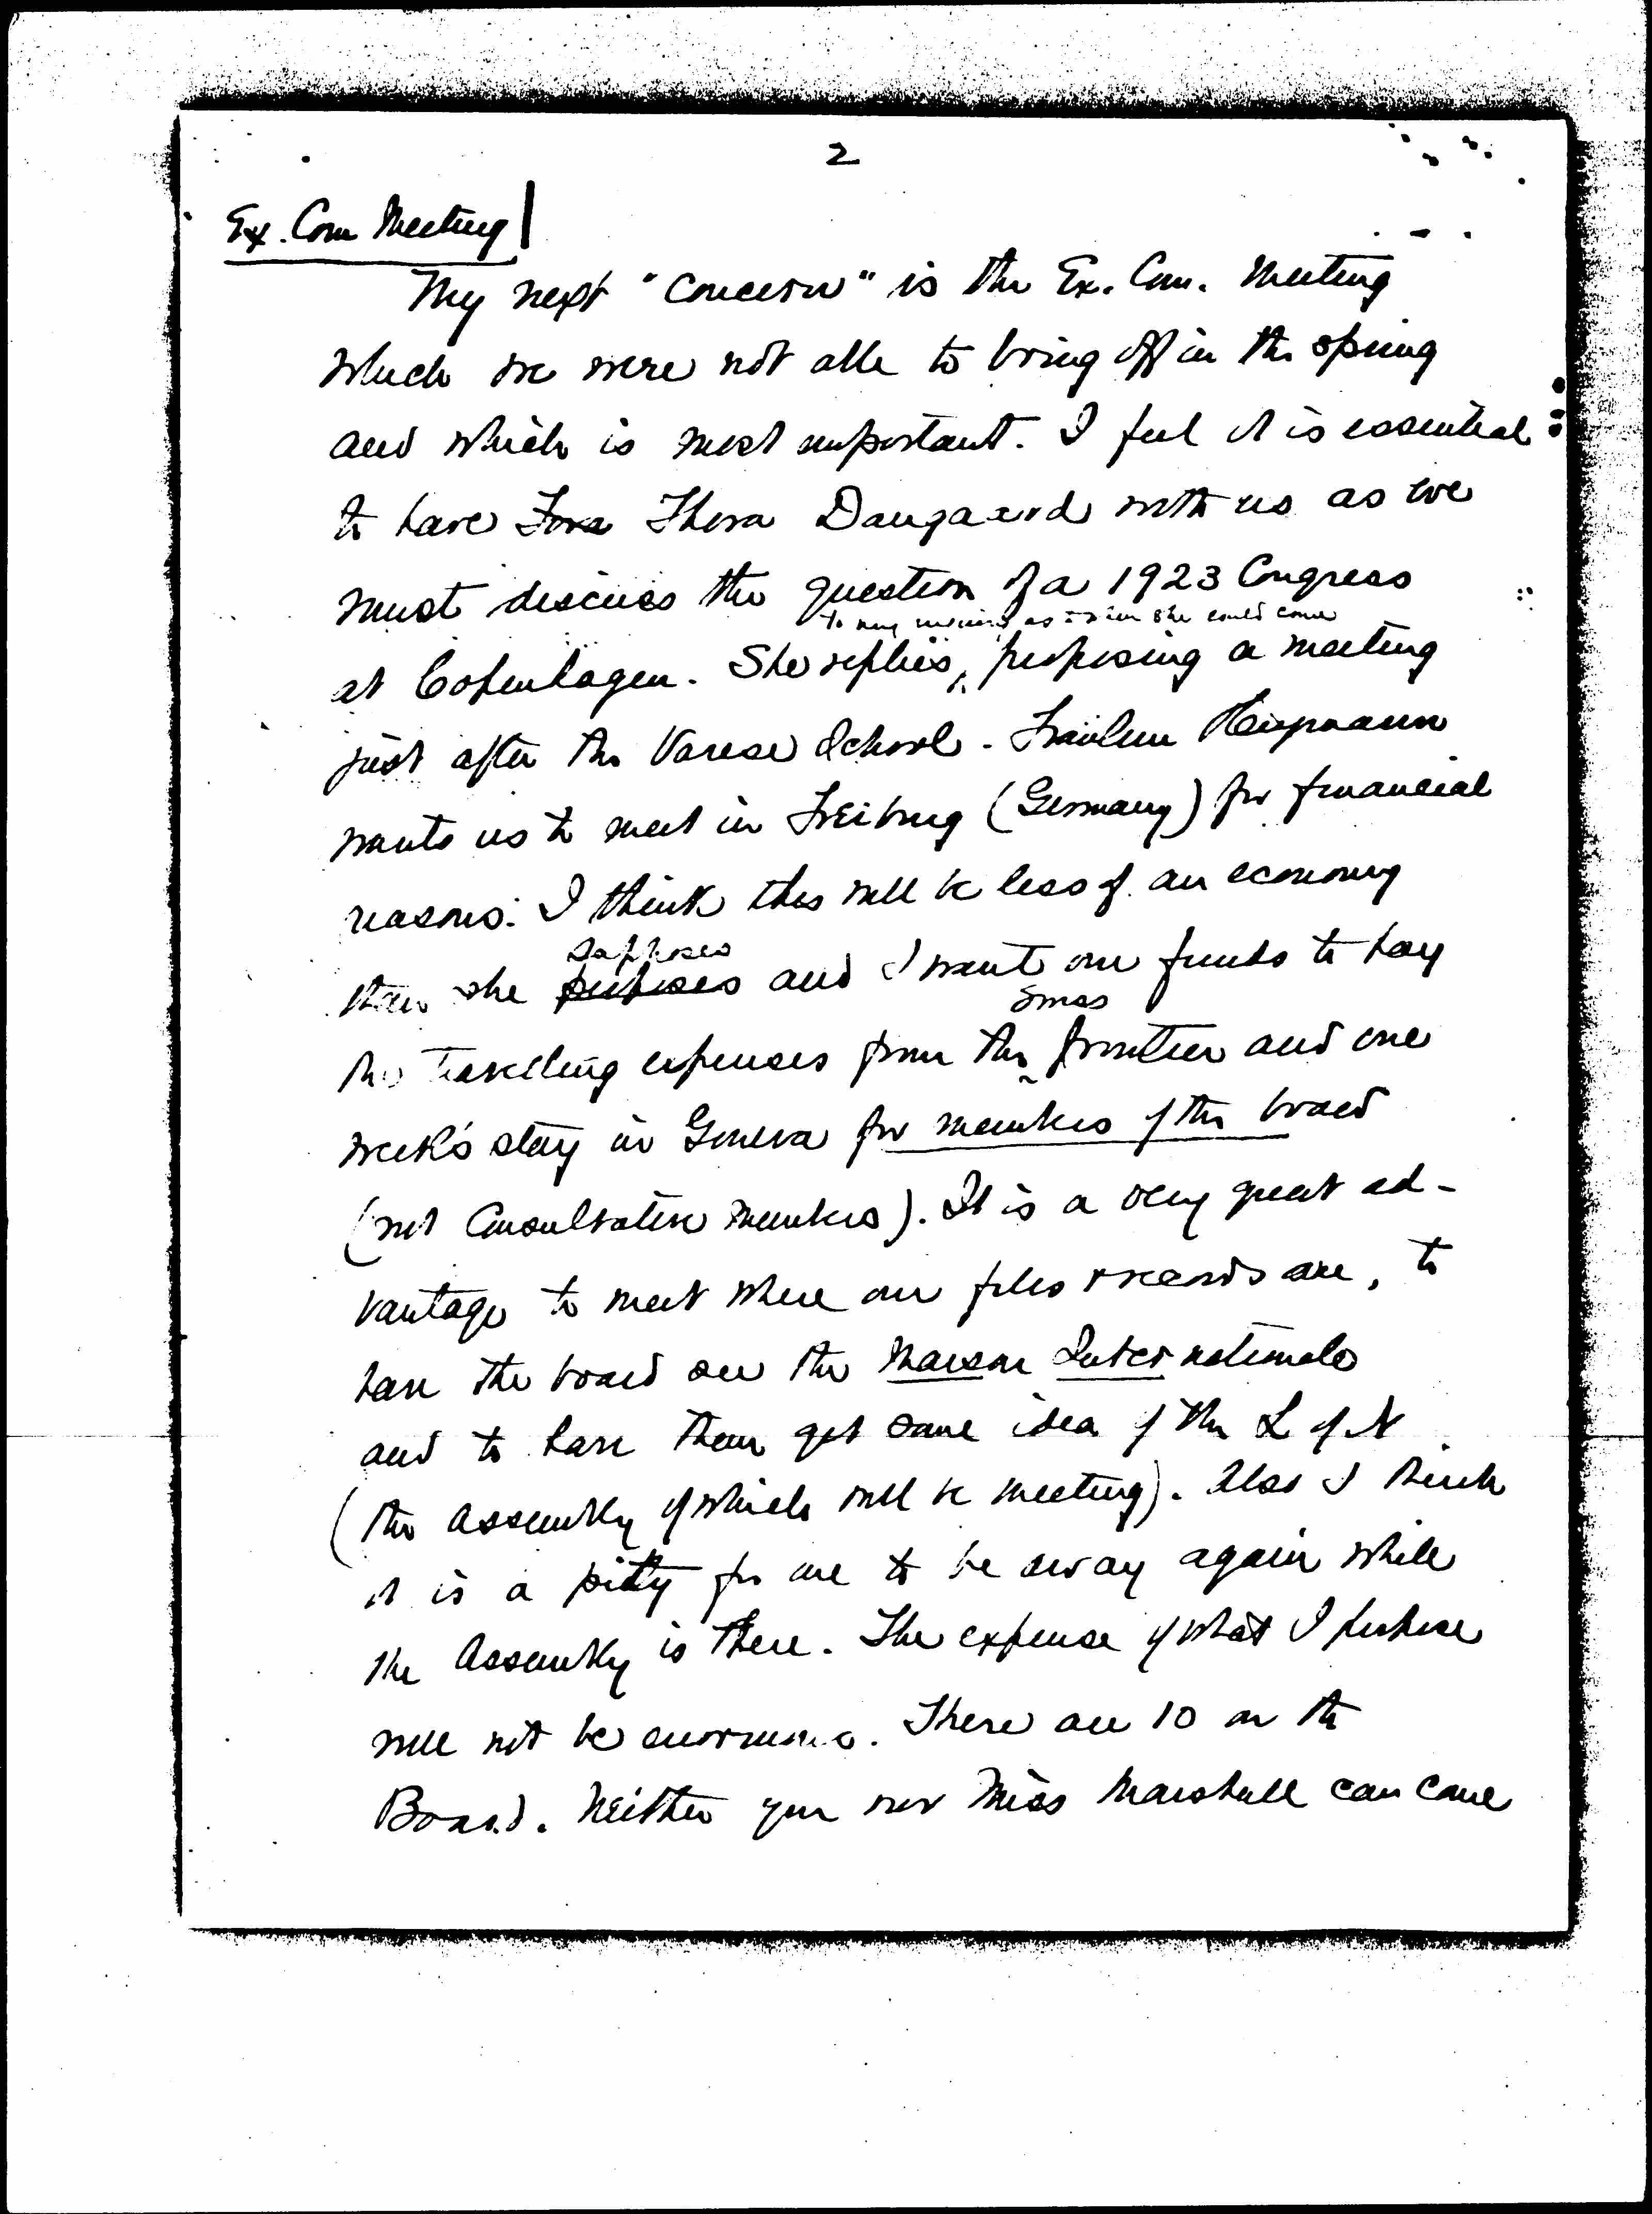 2
Ex. Com Meeting
My next "concern" is the Ex. Com. Meeting
which we were not able to bring off in the spring
and which is most important. I feel it is essential
to have Thora Daugaard with us as we
must discuss the question of a 1923 Congress
to my as to when she could come
at Copenhagen. She replies, proposing a meeting
just after the Varese School. Fräulein Heymann
wants us to meet in Freiburg (Germany) for financial
reasons. I think this will be less of an economy
supposes
than she proposes and I want our funds to pay
Swiss
the travelling expenses from the frontier and one
week's stay in Geneva for members of the board
(not Consultative members). It is a very great ad-
vantage to meet where our files & records are, to
have the board see the Maison Internationale
and to have them get some idea of the L of N
(the Assembly of which will be meeting). Also I think
it is a pitty for me to be away again while
the Assembly is there. The expense of what I propose
will not be enormous. There are 10 on the
Board. Neither you nor Miss Marshall can come